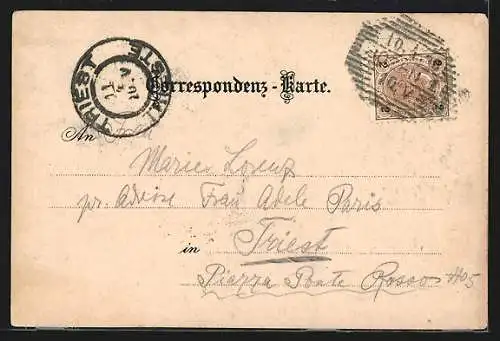 TRIEST TRIESTE
Correspondenz-Karte.
An
Marie Lorenz
pr. Adresse Frau Adele Paris
in Triest
Piazza Ponte Rosso No 5